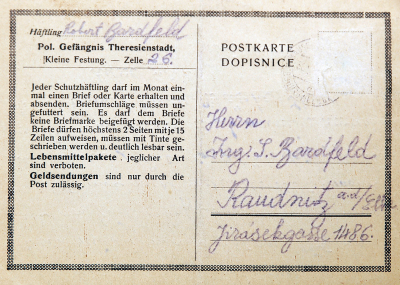 Häftling Robert Bardfeld
Pol. Gefängnis Theresienstadt,
Kleine Festung. — Zelle 26.
Jeder Schutzhäftling darf im Monat ein-
mal einen Brief oder Karte erhalten und
absenden. Briefumschläge müssen un-
gefuttert sein. Es darf dem Briefe
keine Briefmarke beigefügt werden. Die
Briefe dürfen höchstens 2 Seiten mit je 15
Zeilen aufweisen, müssen mit Tinte ge-
schrieben werden u. deutlich lesbar sein.
Lebensmittelpakete jeglicher Art
sind verboten.
Geldsendungen sind nur durch die
Post zulässig.
POSTKARTE
DOPISNICE
Herrn
Ing. S. Bardfeld
Raudnitz a.d/Elbe
Jirasekgasse 1486.